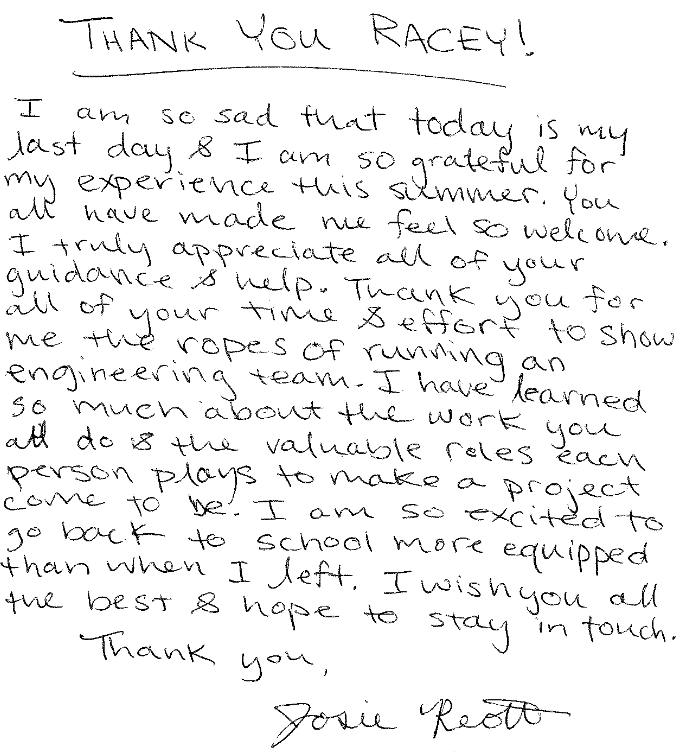 THANK YOU RACEY!
I am so sad that today is my
last day & I am so grateful for
my experience this summer. You
all have made me feel so welcome.
I truly appreciate all of your
guidance & help. Thank you for
all of your time & effort to show
me the ropes of running an
engineering team. I have learned
so much about the work you
all do & the valuable roles each
person plays to make a project
come to be. I am so excited to
go back to school more equipped
than when I left. I wish you all
the best & hope to stay in touch.
Thank you,
Josie Reott